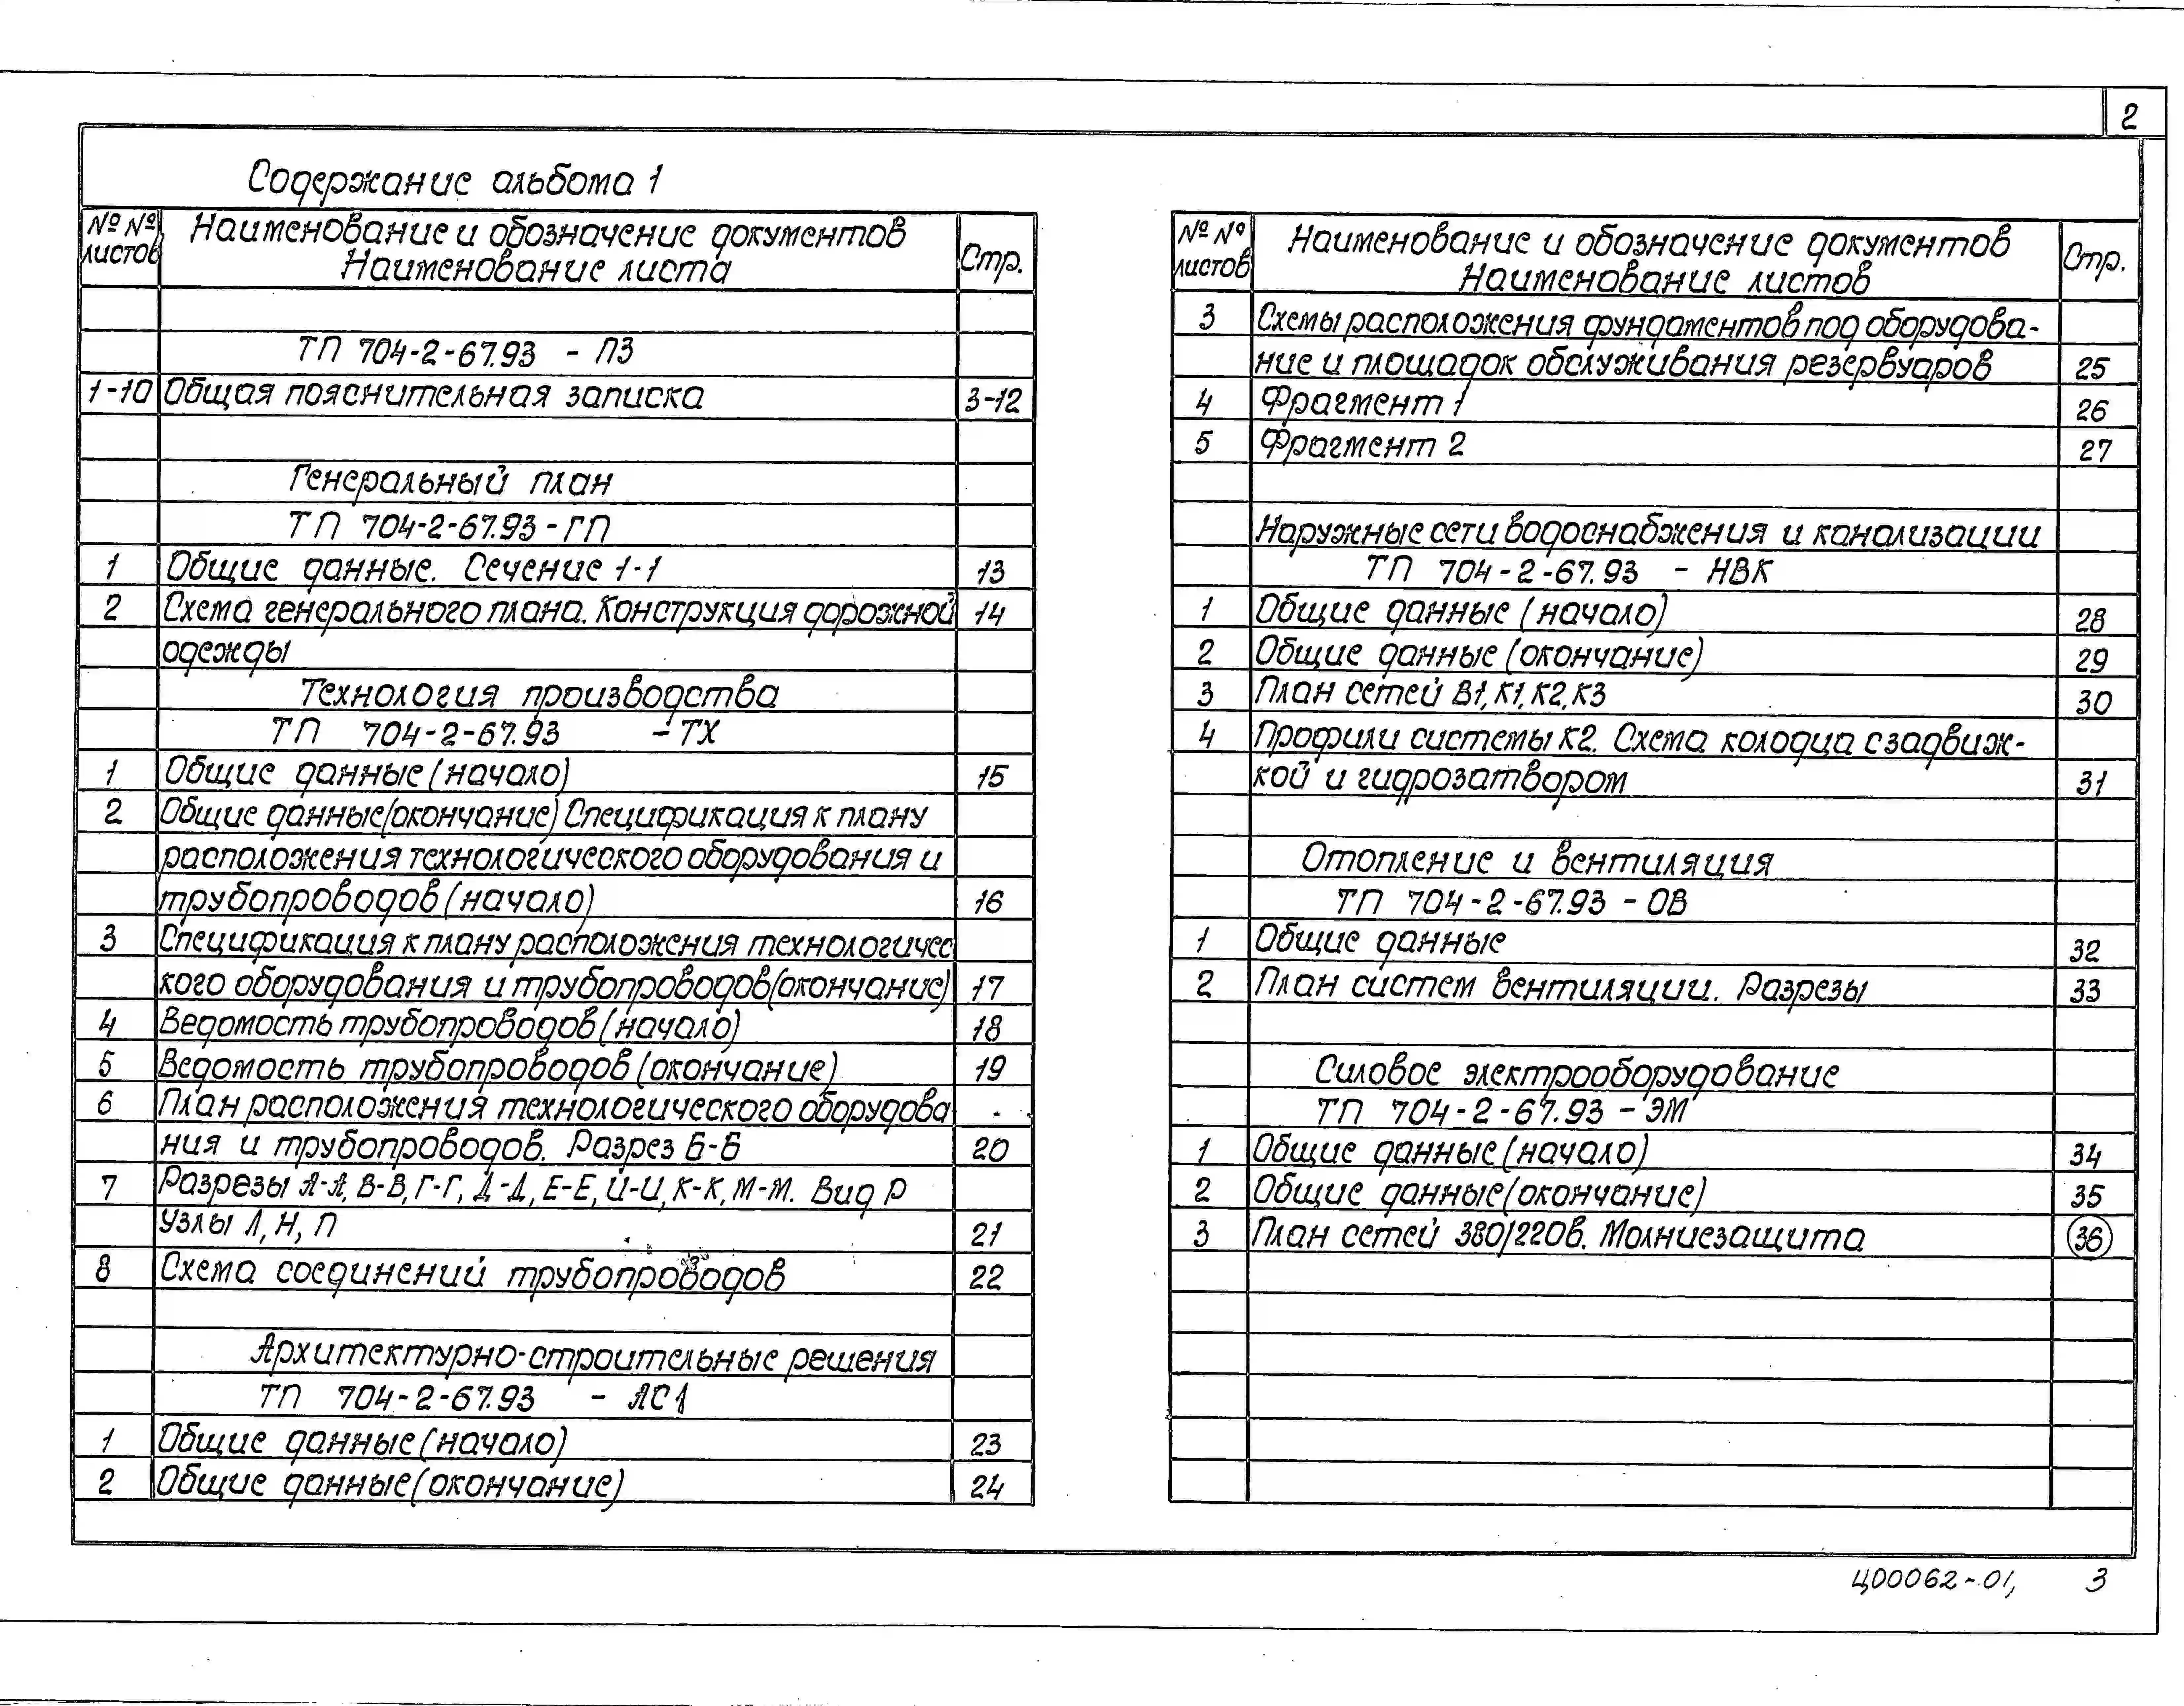 2
Содержание альбома 1
№ № листов
Наименование и обозначение документов
Наименование листа
Стр.
ТП 704-2-67.93 - ПЗ
1-10 Общая пояснительная записка 3-12
Генеральный план
ТП 704-2-67.93-ГП
1 Общие данные. Сечение 1-1 13
2 Схема генерального плана. Конструкция дорожной 14
одежды
Технология производства
ТП 704-2-67.93 -ТХ
1 Общие данные (начало) 15
2 Общие данные (окончание) Спецификация к плану
расположения технологического оборудования и
трубопроводов (начало) 16
3 Спецификация к плану расположения технологичес
кого оборудования и трубопроводов (окончание) 17
4 Ведомость трубопроводов (начало) 18
5 Ведомость трубопроводов (окончание) 19
6 План расположения технологического оборудова
ния и трубопроводов. Разрез Б-Б 20
7 Разрезы А-А, В-В, Г-Г, Д-Д, Е-Е, И-И, К-К, М-М. Вид Р
Узлы Л, Н, П 21
8 Схема соединений трубопроводов 22
Архитектурно-строительные решения
ТП 704-2-67.93 - АС1
1 Общие данные (начало) 23
2 Общие данные (окончание) 24
№ № листов
Наименование и обозначение документов
Наименование листов
Стр.
3 Схемы расположения фундаментов под оборудова-
ние и площадок обслуживания резервуаров 25
4 Фрагмент 1 26
5 Фрагмент 2 27
Наружные сети водоснабжения и канализации
ТП 704-2-67.93 - НВК
1 Общие данные (начало) 28
2 Общие данные (окончание) 29
3 План сетей В1, К1, К2, К3 30
4 Профили системы К2. Схема колодца с задвиж-
кой и гидрозатвором 31
Отопление и вентиляция
ТП 704-2-67.93 - ОВ
1 Общие данные 32
2 План систем вентиляции. Разрезы 33
Силовое электрооборудование
ТП 704-2-67.93 - ЭМ
1 Общие данные (начало) 34
2 Общие данные (окончание) 35
3 План сетей 380/220в. Молниезащита 36
Ц00062-01, 3